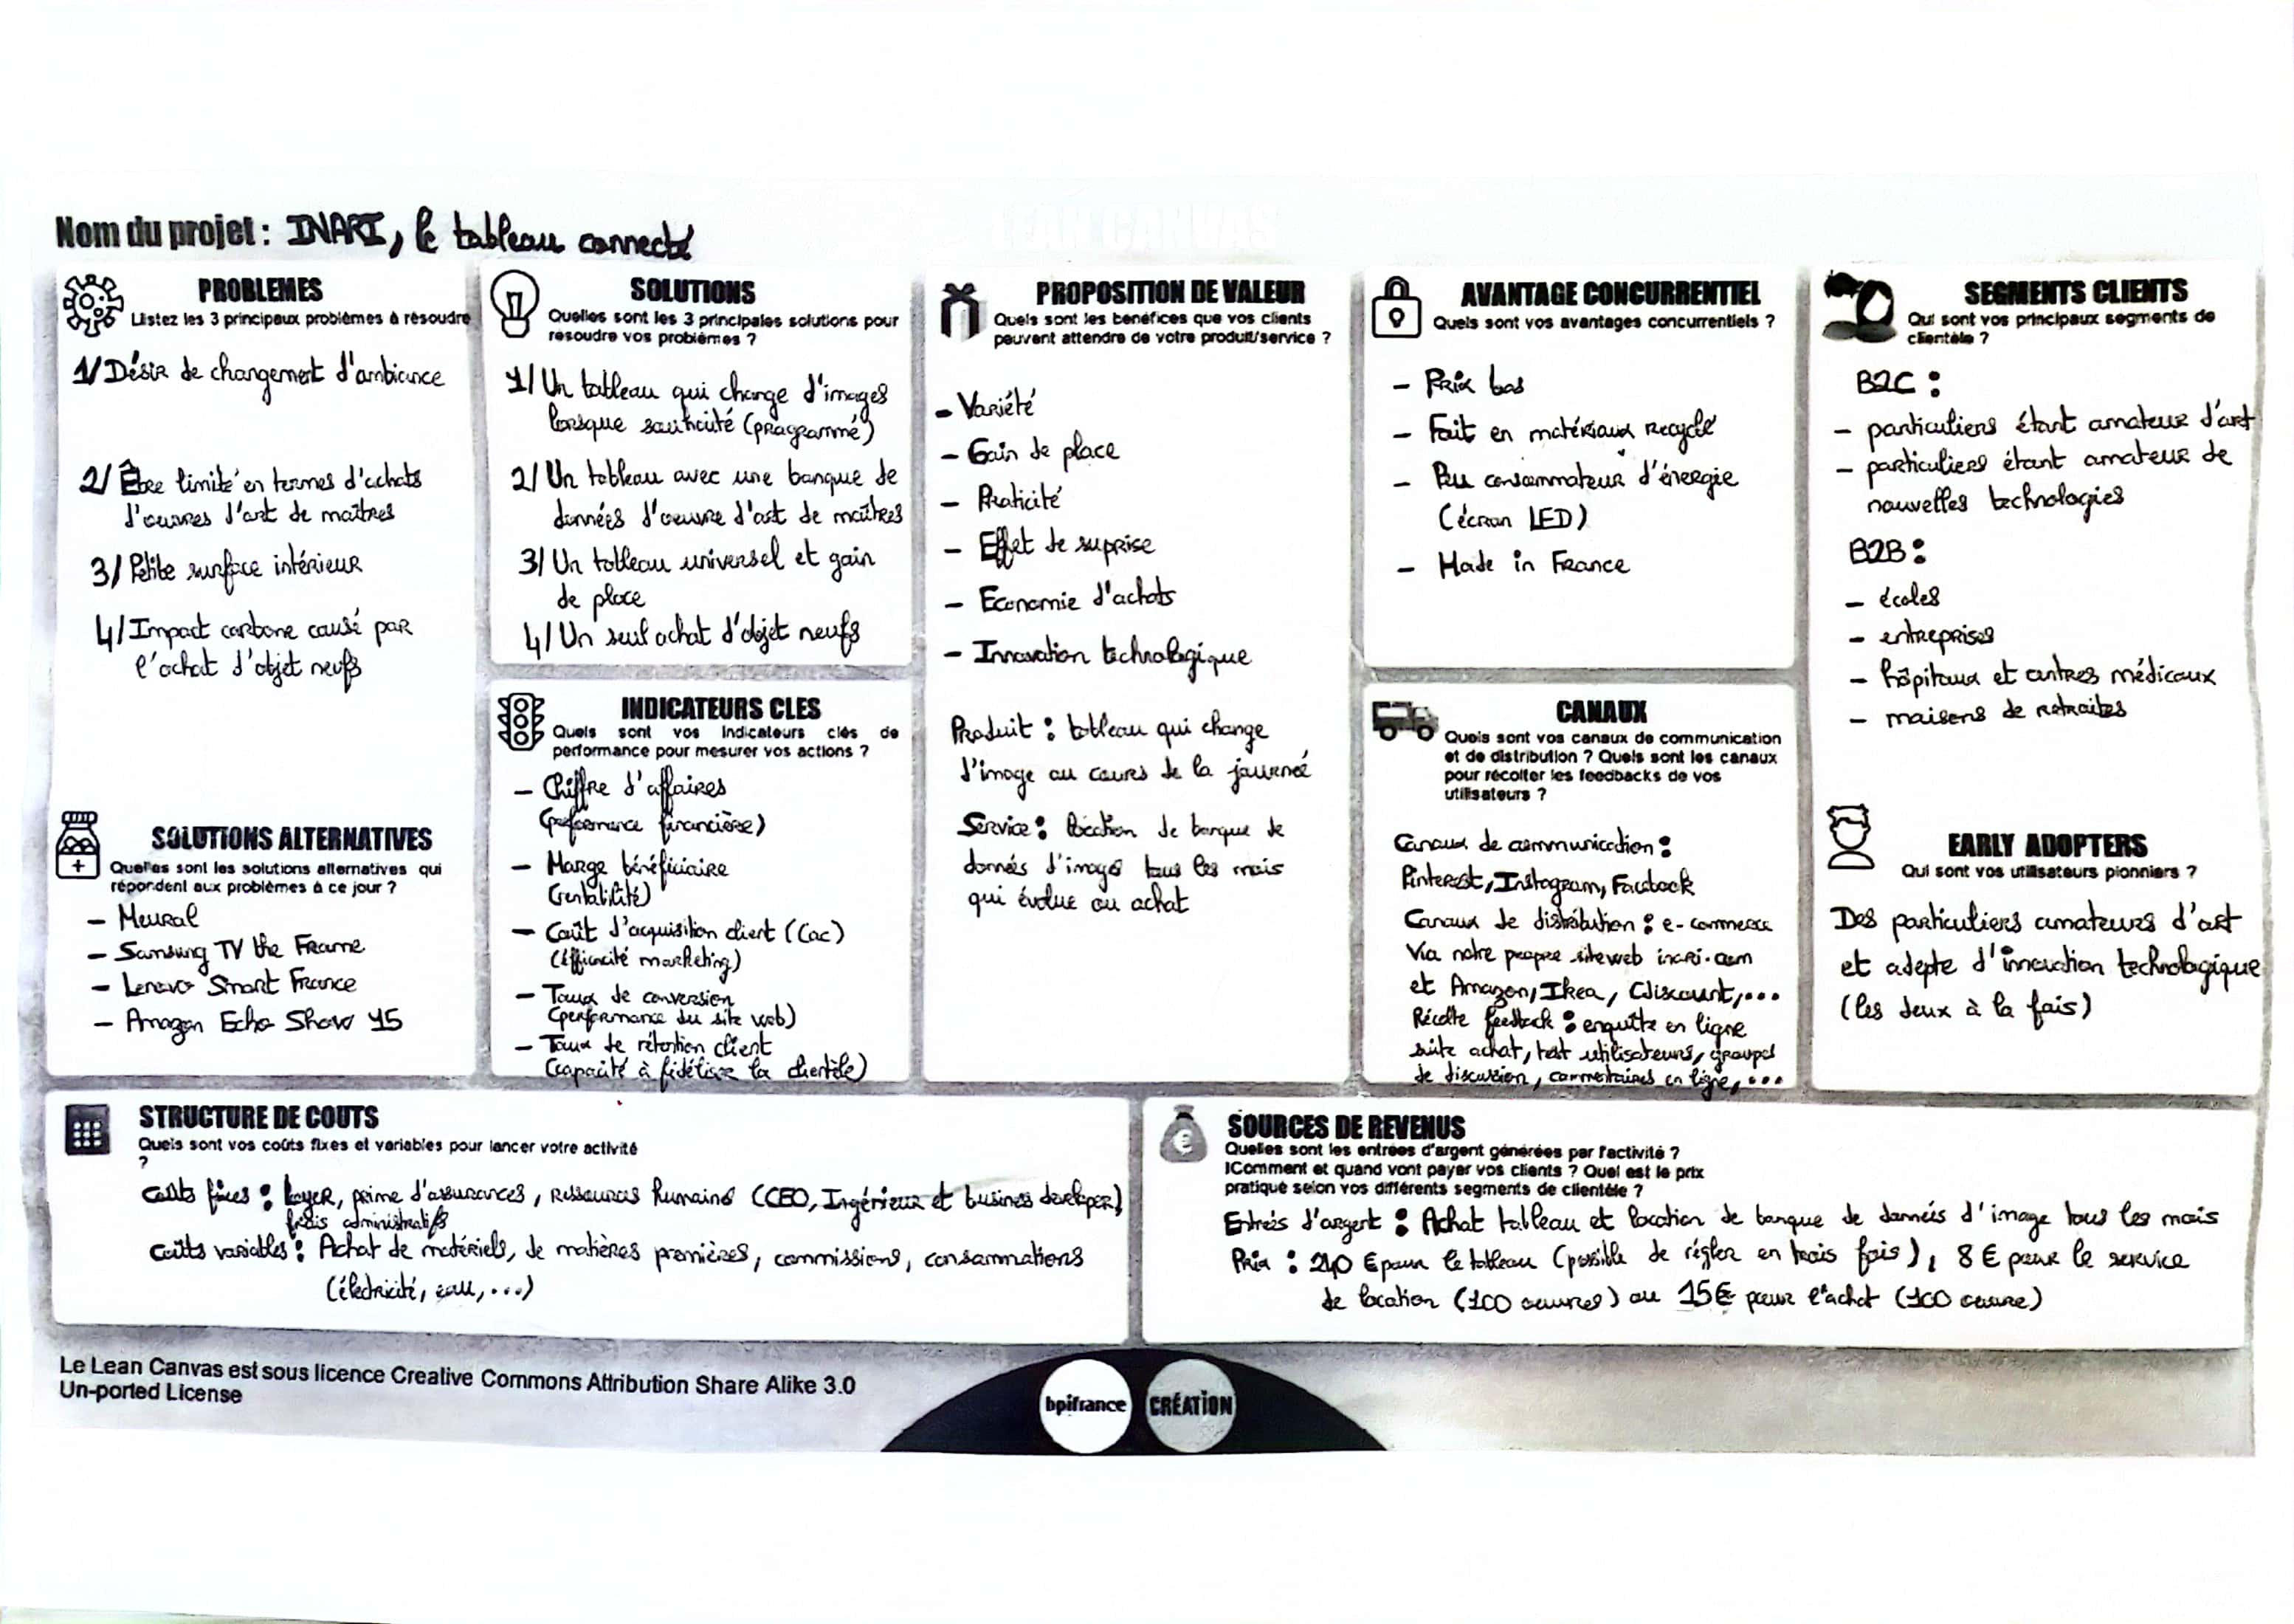 LEAN CANVAS
Nom du projet : INARI, le tableau connecté
PROBLEMES
Listez les 3 principaux problèmes à résoudre
1/ Désir de changement d'ambiance
2/ Être limité en termes d'achats
d'œuvres d'art de maîtres
3/ Petite surface intérieur
4/ Impact carbone causé par
l'achat d'objet neufs
SOLUTIONS ALTERNATIVES
Quelles sont les solutions alternatives qui
répondent aux problèmes à ce jour ?
- Meural
- Samsung TV the Frame
- Lenovo Smart France
- Amazon Echo Show 15
SOLUTIONS
Quelles sont les 3 principales solutions pour
résoudre vos problèmes ?
1/ Un tableau qui change d'images
lorsque souhaité (programmé)
2/ Un tableau avec une banque de
données d'oeuvre d'art de maîtres
3/ Un tableau universel et gain
de place
4/ Un seul achat d'objet neufs
INDICATEURS CLES
Quels sont vos indicateurs clés de
performance pour mesurer vos actions ?
- Chiffre d'affaires
(performance financière)
- Marge bénéficiaire
(rentabilité)
- Coût d'acquisition client (Cac)
(éfficacité marketing)
- Taux de conversion
(performance du site web)
- Taux de rétention client
(capacité à fidéliser la clientèle)
PROPOSITION DE VALEUR
Quels sont les bénéfices que vos clients
peuvent attendre de votre produit/service ?
- Variété
- Gain de place
- Praticité
- Effet de suprise
- Economie d'achats
- Innovation technologique
Produit : tableau qui change
d'image au cours de la journée
Service : location de banque de
donnés d'images tous les mois
qui évolue ou achat
AVANTAGE CONCURRENTIEL
Quels sont vos avantages concurrentiels ?
- Prix bas
- Fait en matériaux recyclé
- Peu consommateur d'énergie
(écran LED)
- Made in France
CANAUX
Quels sont vos canaux de communication
et de distribution ? Quels sont les canaux
pour récolter les feedbacks de vos
utilisateurs ?
Canaux de communication :
Pinterest, Instagram, Facebook
Canaux de distribution : e-commerce
Via notre propre site web inari.com
et Amazon, Ikea, Cdiscount, ...
Récolte feedback : enquête en ligne
suite achat, test utilisateurs, groupes
de discussion, commentaires en ligne, ...
SEGMENTS CLIENTS
Qui sont vos principaux segments de
clientèle ?
B2C :
- particuliers étant amateur d'art
- particuliers étant amateur de
nouvelles technologies
B2B :
- écoles
- entreprises
- hôpitaux et centres médicaux
- maisons de retraites
EARLY ADOPTERS
Qui sont vos utilisateurs pionniers ?
Des particuliers amateurs d'art
et adepte d'innovation technologique
(les deux à la fois)
STRUCTURE DE COUTS
Quels sont vos coûts fixes et variables pour lancer votre activité
?
Coûts fixes : Loyer, prime d'assurances, ressources humaines (CEO, Ingénieur et business developer)
frais administratifs
Coûts variables : Achat de matériels, de matières premières, commissions, consommations
(électricité, eau, ...)
SOURCES DE REVENUS
Quelles sont les entrées d'argent générées par l'activité ?
lComment et quand vont payer vos clients ? Quel est le prix
pratiqué selon vos différents segments de clientèle ?
Entrées d'argent : Achat tableau et location de banque de donnés d'image tous les mois
Prix : 240 € pour le tableau (possible de régler en trois fois), 8 € pour le service
de location (100 oeuvres) ou 15€ pour l'achat (100 oeuvre)
Le Lean Canvas est sous licence Creative Commons Attribution Share Alike 3.0
Un-ported License
bpifrance CRÉATION